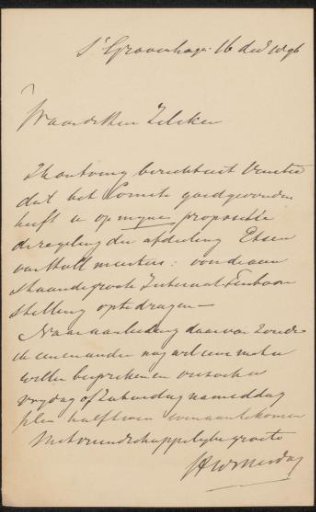 s'Gravenhage 16 dec 1896
Waarde Heer Zilcken
Ik ontving bericht uit Venetie
dat het Comité goedgevonden
heeft u op mijne propositie
de regeling der afdeeling Etsen
van Holl meesters: voor de aan
staande groote Internat Tentoon
stelling op te dragen -
Naar aanleiding daarvan zoude
ik een en ander nog wel eens met u
willen bespreken en verzoek u
vrijdag of Zaturdag namiddag
plm half twee even aan te komen
Met vriendschappelijke groete
HWMesdag